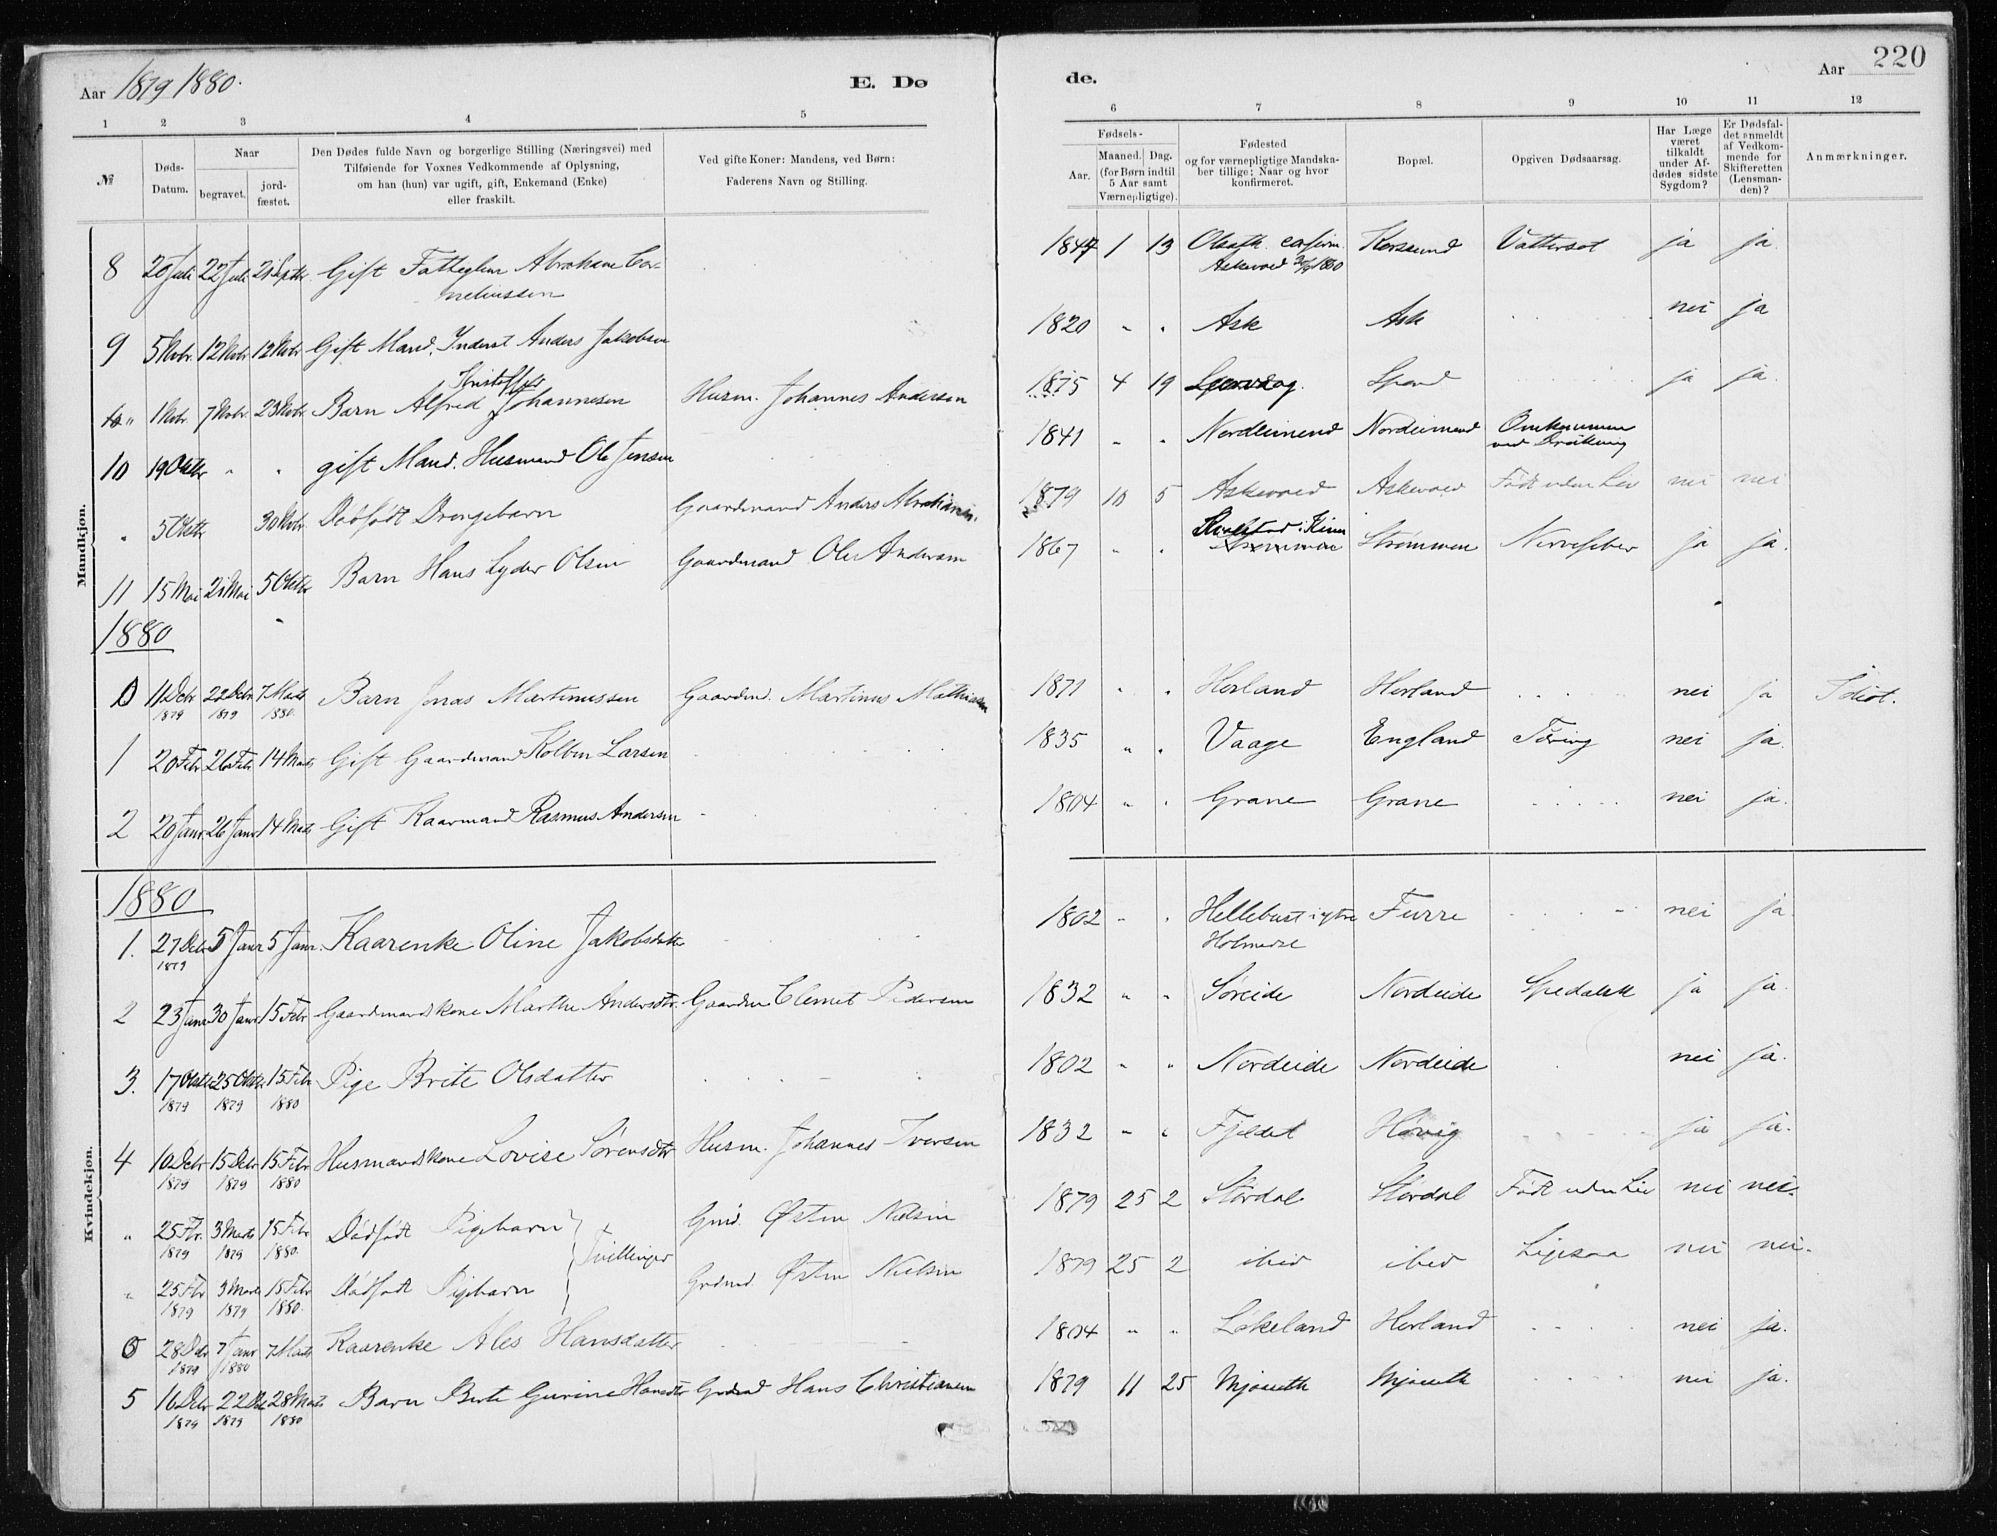 220
Aar 1879 1880.
E. Dø
de.
Aar
1 2 3 4 5 6 7 8 9 10 11 12
№
Døds-
Datum.
Naar
begravet.
jord-
fæstet.
Den Dødes fulde Navn og borgerlige Stilling (Næringsvei) med
Tilføiende for Voxnes Vedkommende af Oplysning,
om han (hun) var ugift, gift, Enkemand (Enke)
eller fraskilt.
Ved gifte Koner: Mandens, ved Børn:
Faderens Navn og Stilling.
Fødsels-
Aar.
Maaned. Dag.
(for Børn indtil
5 Aar samt
Værnepligtige).
Fødested
og for værnepligtige Mandska-
ber tillige: Naar og hvor
konfirmeret.
Bopæl.
Opgiven Dødsaarsag.
Har Læge
været
tilkaldt
under Af-
dødes sidste
Sygdom?
Er Dødsfal-
det anmeldt
af Vedkom-
mende for
Skifteretten
(Lensman-
den)?
Anmærkninger.
Mandkjøn.
8 20 Juli 22 Juli 21 Septbr. Gift Fattiglem Abraham Cor- 1847 1 13 Korssund Vattersot ja ja.
neliussen Askevold 1880
9 5 Nvbr. 12 Nvbr 12 Nvbr Gift Mand, Inderst Anders Jakobsen 1820 " " Ask Ask nei ja
Kristoffer
10 " 1 Nvbr 7 Nvbr. 23 Nvbr Barn Alfred Johannesen Husm. Johannes Andersen 1875 4 19 ja ja.
10 19 Oktbr " " gift Mand. Husmand Ole Jensen 1841 " " Nordeimend Nordeimend Omkommen
ved Drukning
" 5 Oktbr 30 Nvbr Dødfødt Drengebarn Gaardmand Anders Abrahams. 1879 10 5 Askevold Askevold Født uden Liv nei nei
11 15 Mai 21 Mai 5 Oktbr Barn Hans Lyder Olsen Gaardmand Ole Andersen 1867 " " Strømmen Strømmen Nervefeber ja ja.
1880
0 11 Debr 22 Debr 7 Marts Barn Jonas Martinussen Gaardmd. Martinus Mathissen 1871 " " Herland Herland nei ja Idiot.
1879 1879 1880.
1 20 Febr 26 Feb 14 Marts Gift Gaardmand Kolben Larsen 1835 " " Vaage England Tæring nei ja.
2 20 Janr. 26 Janr 14 Marts Gift Kaarmand Rasmus Andersen 1804 " " Grane Grane nei ja.
Kvindekjøn.
1880
1. 27 Debr 5 Janr 5 Janr. Kaarenke Oline Jakobsdatter 1802 " " Hellebust i ytre Furre nei ja.
1879 Holmedal
2 23 Janr 30 Janr 15 Febr Gaardmandskone Marthe Andersdtr. Gaardm. Clemet Pedersen 1832 " " Søreide Nordeide Spedalsk ja ja.
3. 17 Oktbr 25 Oktbr. 15 Febr Pige Brite Olsdatter 1802 " " Nordeide Nordeide nei ja.
1879 1879 1880
4 10 Debr 15 Debr 15 Febr Husmandskone Lovise Sørensdtr Husm. Johannes Iversen 1832 " " Fjeldet Høvig ja ja.
1879 1879 1880
" 25 Fbr. 3 Marts 15 Febr Dødfødt Pigebarn Tvillinger Gmd. Østen Nielsen 1879 25 2 Stordal Stordal Født uden Liv nei nei.
1879 1879 1880.
" 25 Fbr 3 Marts 15 Febr Dødfødt Pigebarn Grdmd. Østen Nielsen 1879 25 2 ibid ibid Ligesaa nei nei.
1879 1879 1880.
0 28 Debr 7 Janr 7 Marts Kaarenke Ales Hansdatter 1804 " " Løkeland Herland nei ja.
1879 1880
5 16 Debr 22 Db 28 Marts Barn Berte Gurine Hansdtr Grdmd Hans Christiansen 1879 11 25 nei ja.
1879 1879 1880